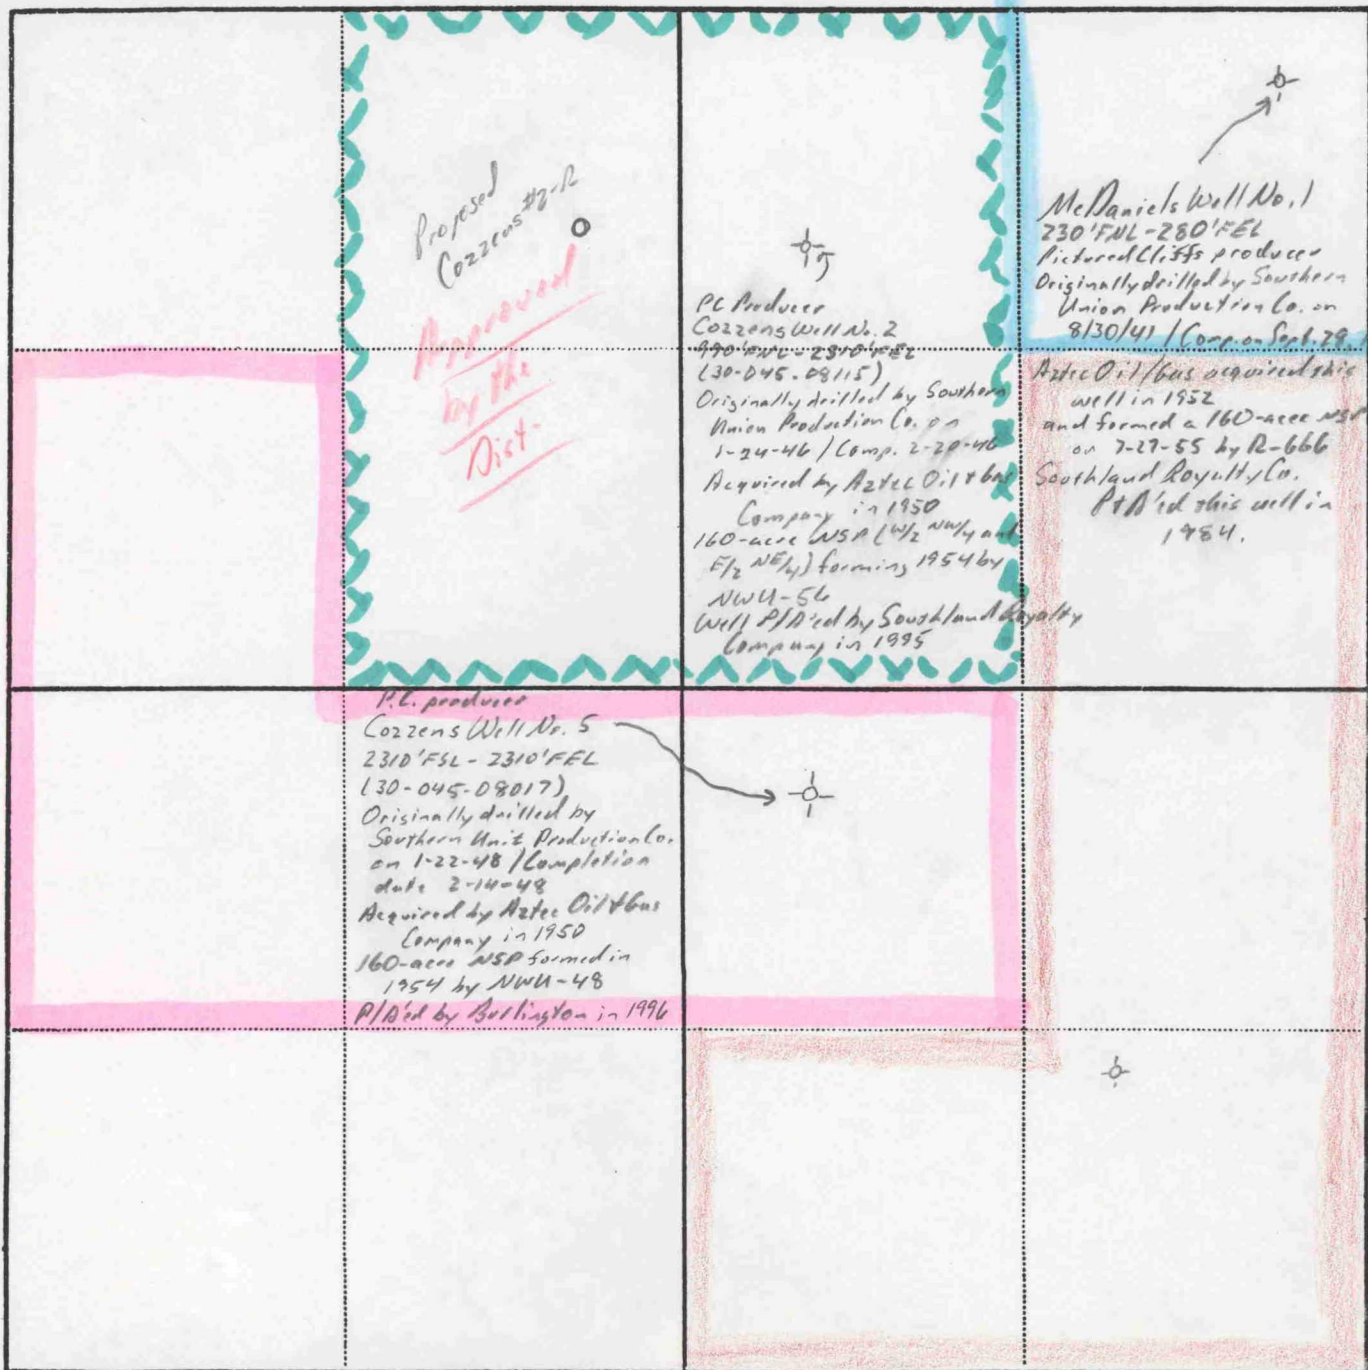 Proposed
Cozzens #2-R
Approved
by the
Dist.
PC Producer
Cozzens Well No. 2
990'FNL-2310'FEL
(30-045-08115)
Originally drilled by Southern
Union Production Co. on
1-24-46 / Comp. 2-20-46
Acquired by Aztec Oil & Gas
Company in 1950
160-acre NSP (W/2 NW/4 and
E/2 NE/4) forming 1954 by
NWU-56
Well P/A'ed by Southland Royalty
Company in 1995
McDaniels Well No. 1
230'FNL-280'FEL
Pictured Cliffs producer
Originally drilled by Southern
Union Production Co. on
8/30/41 / Comp. on Sept. 29
Aztec Oil/Gas acquired this
well in 1952
and formed a 160-acre NSP
on 7-27-55 by R-666
Southland Royalty Co.
P+A'ed this well in
1984.
P.C. producer
Cozzens Well No. 5
2310'FSL-2310'FEL
(30-045-08017)
Originally drilled by
Southern Unit Production Co.
on 1-22-48 / Completion
date 2-14-48
Acquired by Aztec Oil & Gas
Company in 1950
160-acre NSP formed in
1954 by NWU-48
P/A'ed by Burlington in 1996